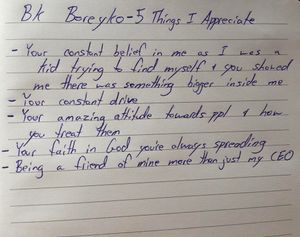 Bk Boreyko-5 Things I Appreciate
- Your constant belief in me as I was a
kid trying to find myself & you showed
me there was something bigger inside me
- Your constant drive
- Your amazing attitude towards ppl & how
you treat them
- Your faith in God you're always spreading
- Being a friend of mine more than just my CEO